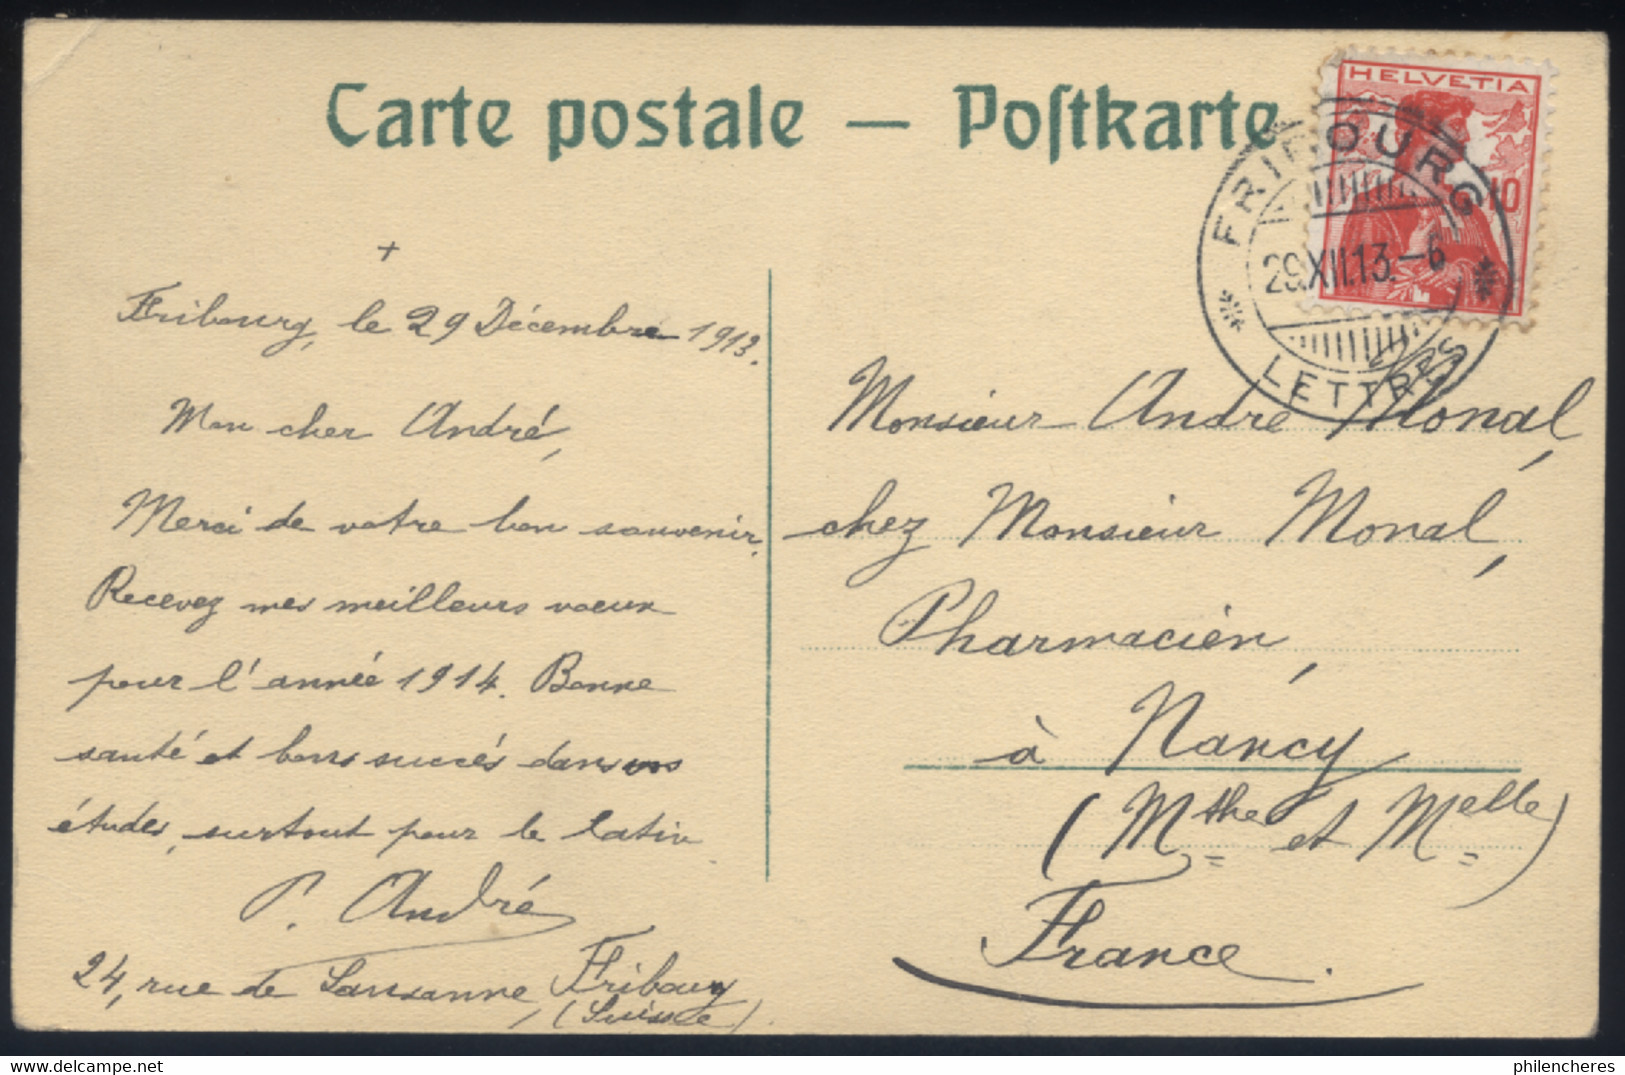 Carte postale — Poſtkarte
HELVETIA
10
FRIBOURG
29.XII.13.–6
LETTRES
+
Fribourg, le 29 Décembre 1913.
Mon cher André,
Merci de votre bon souvenir.
Recevez mes meilleurs voeux
pour l'année 1914. Bonne
santé et bons succés dans vos
études, surtout pour le latin.
P. André
24, rue de Lausanne, Fribourg
(Suisse)
Monsieur André Monal,
chez Monsieur Monal,
Pharmacien,
à Nancy
(Mthe et Melle)
France.
philencheres